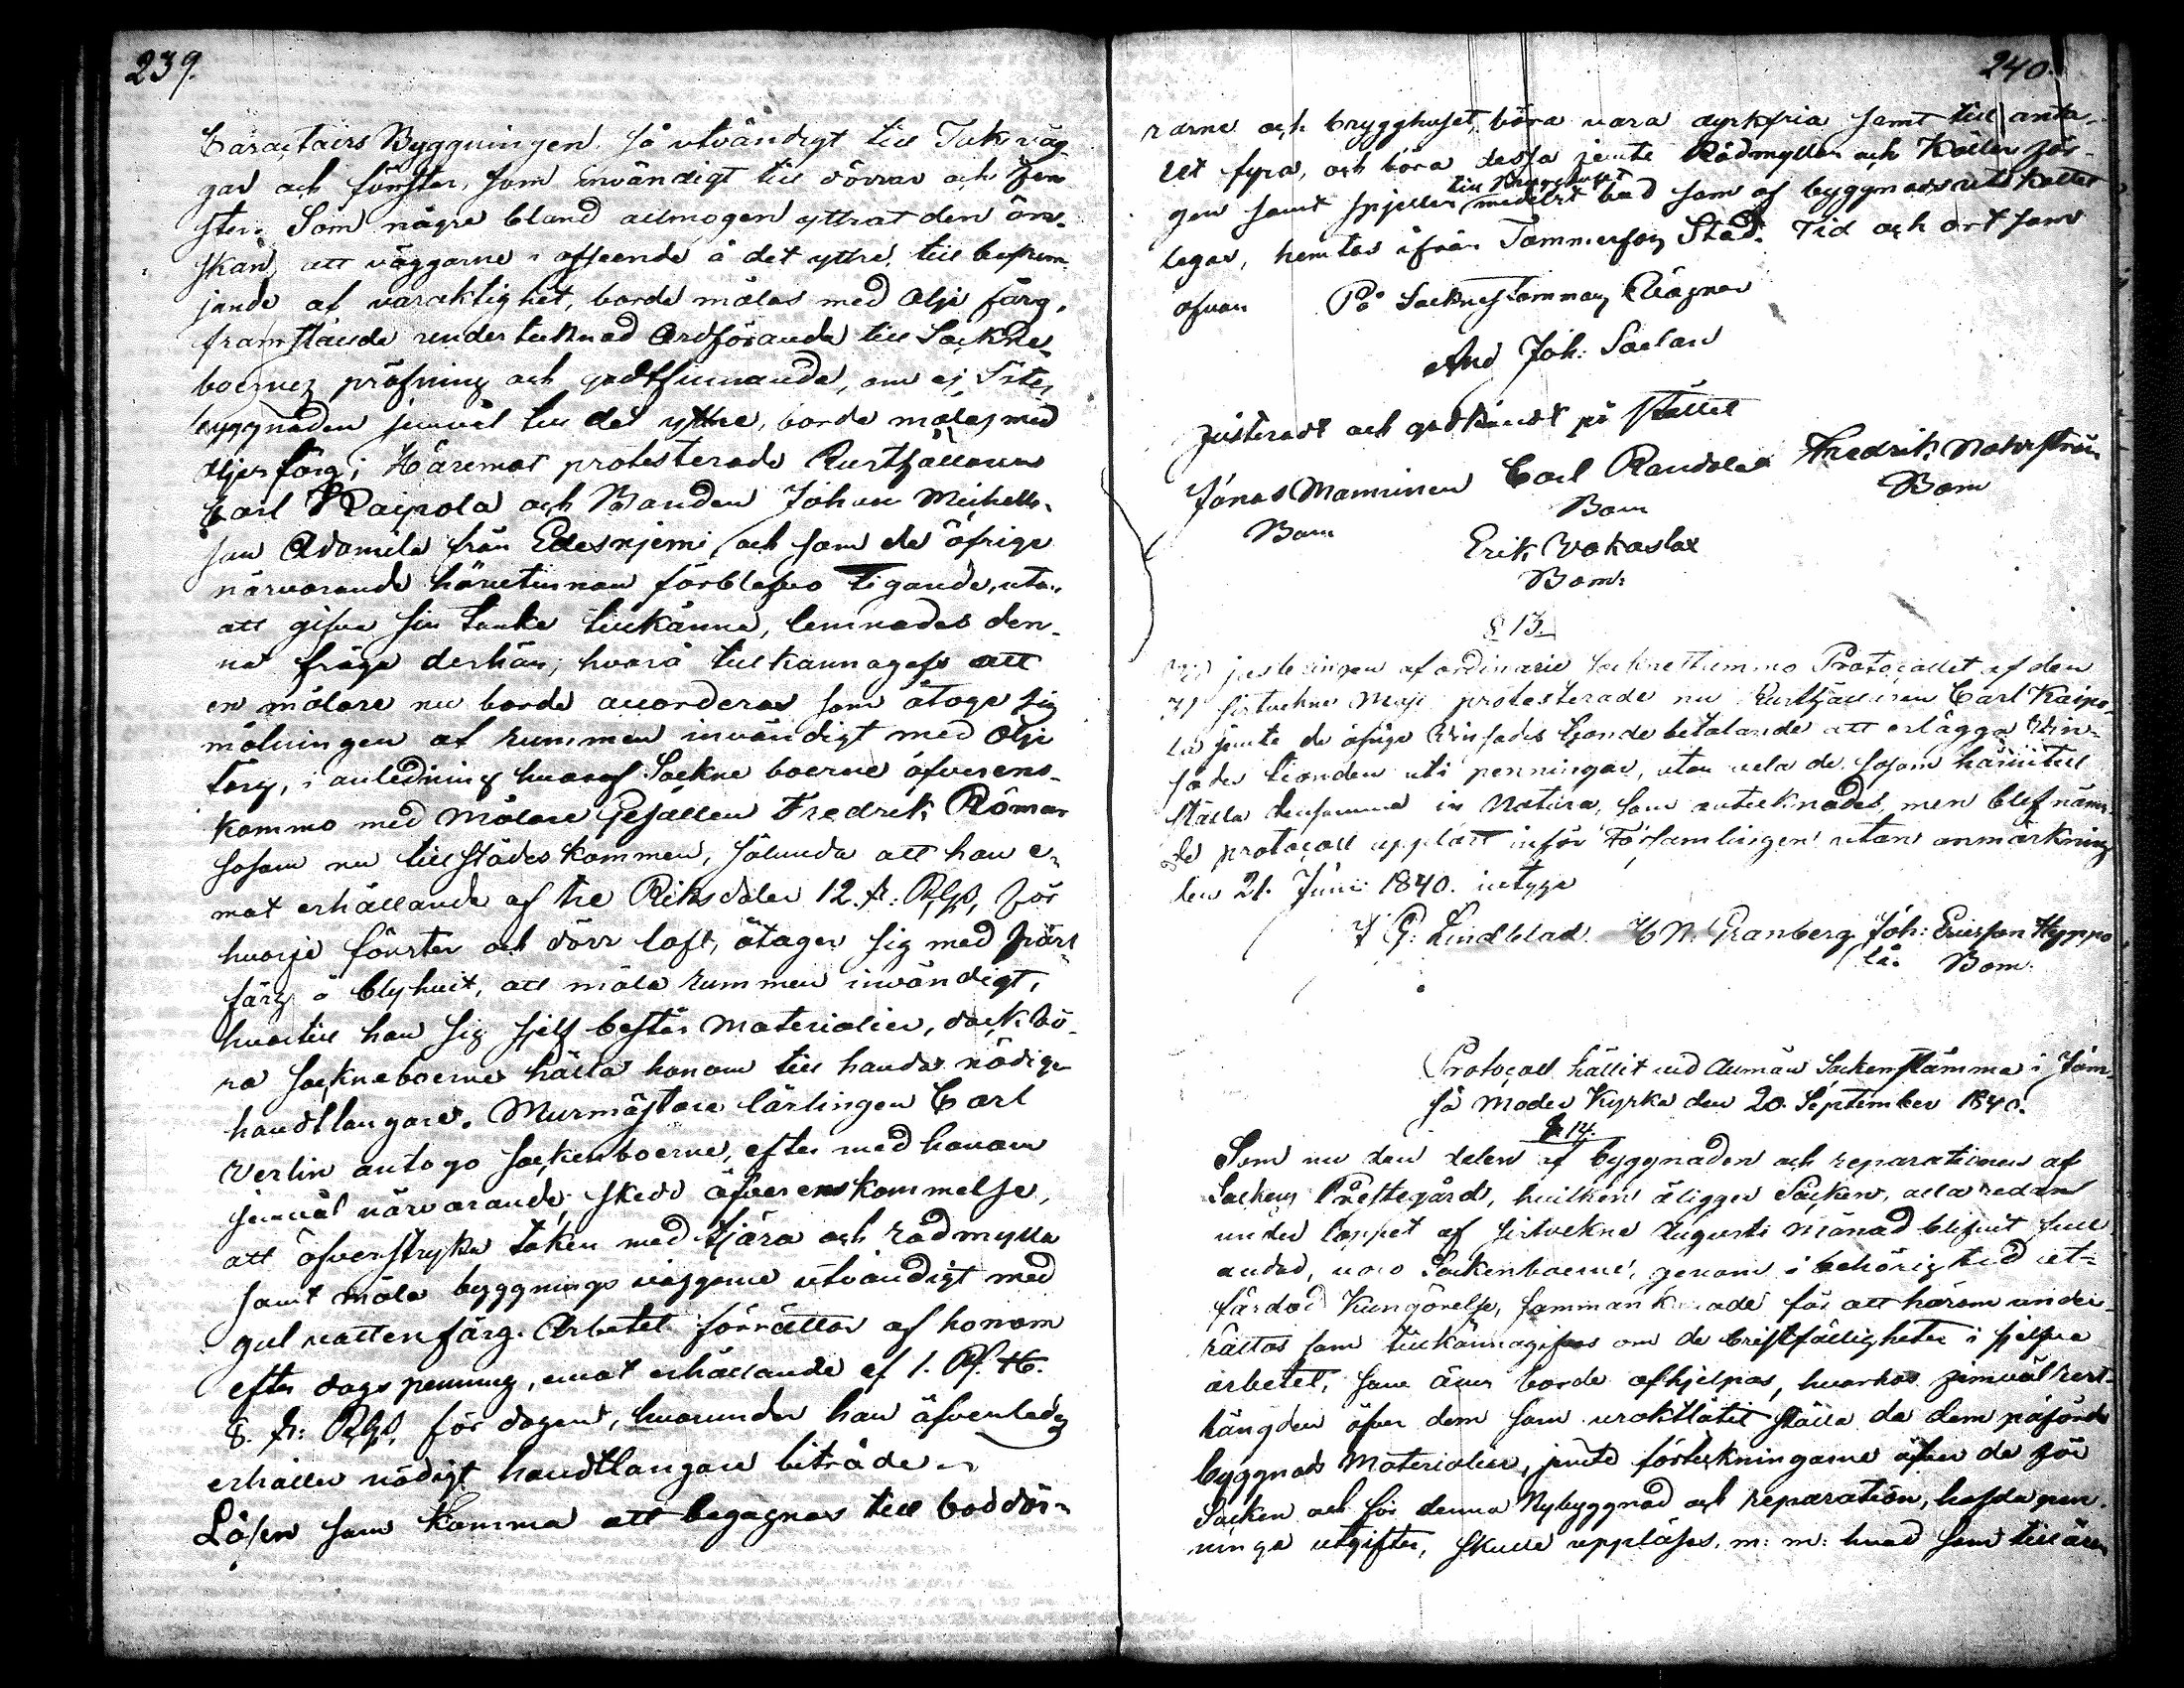 239.
Caractairs Byggningen så utvändigt till Tak väg-
gar och fönster, som invändigt till dörrar och fen
ster. Som någre bland allmogen yttrat den ön-
skan, att väggarne i afseende å det yttre, till befrem
jande af varaktighet, borde målas med Olje färg,
framstälde undertecknad Ordförande till Sockne-
boernes pröfning och godtfinnande, om ej
byggnaden jemväl till det yttre, borde målas med
oljefärg; Häremot protesterade Rusthållaren
Carl Kaipola och Bonden Johan Michells-
son Adamila från Edesnjemi, och som de öfrige
närvarande härutinnan förblefvo tigande, utan
att gifva sin tanke tillkänna, lemnades den-
na fråga derhän; hvarå tillkännagafs att
en målare nu borde accorderas som åtoge sig
målningen af rummen invändigt med Olje
färg, i anledning hvaraf Sockne boerne öfverens-
kommo med Målare Gesällen Fredrik Roman
såsom nu tillstädes kommen, sålunda att han e-
mot erhållande af tre Riksdaler 12. s: Rgs, för
hvarje fönster och dörr loft, åtager sig med
färg å blyhvit, att måla rummen invändigt,
hvartill han sig sjelf består Materialier, dock bö-
ra Sockneboerne hålla honom till handa nödige
handtlangare. Murmästare lärlingen Carl
Verlin antogo Sockenboerne, efter med honom
jemväl närvarande, skedd öfverenskommelse,
att öfverstryka taken med tjära och rödmylla
samt måla byggnings väggarne utvändigt med
gul vattenfärg. Arbetet förrättas af honom
efter dags penning, emot erhållande af 1. R. 16.
8. s: Rgs, för dagen, hvarunder han äfvenledes
erhåller nödigt handtlangare biträde.
Låsen som komma att begagnas till boddör-
240.
rarne och brygghuset, böra vara dyrkfria samt till anta-
let fyra, och böra dessa jemte Rödmyllan och Källar
gen samt spjellen till medelst bud som af byggnads
legas, hemtas ifrån Tammerfors Stad. Tid och ort som
ofvan På Socknestämmans Vägnar
And Joh: Saelan
Justeradt och godkändt på stället
Jonas Manninen Carl Randala Fredrik
Bom Bom Bom
Erik Vokaslax
Bom:
§ 13.
Vid justeringen af ordinarie Socknestämmo Protocollet af den
31 sistvekne Maji protesterade nu Rusthållaren Carl Kaipo-
la jemte de öfrige tionde betalande att erlägga
sädes tionden uti penningar, utan vela de såsom härintill
ställa densamma in Natura, som antecknades, men blef näm-
de protocoll uppläst inför Församlingen utan anmärkning
den 21. Junii 1840. intyga
J G: Lindblad H N. Granberg Joh: Ericsson Hyppo
lä. Bom.
Protocoll hållit vid Allmän Sockenstämma i Jäm-
sä Moder Kyrka den 20. September 1840.
§ 14.
Som nu den delen af byggnaden och reparationen af
Sockens Prestegård, hvilken åligger Socken, alla redan
under loppet af sistvekne Augusti månad blifvit full
andad, voro Sockenboerne, genom i behörig tid ut-
färdad Kungörelse, sammankallade för att härom under-
rättas som tillkännagifvas om de bristfälligheter i sjelfva
arbetet, som ännu borde afhjelpas, hvarhos jemväl rest-
längden öfver dem som uraktlåtit ställa de dem påförde
byggnads Materialier, jemte förteckningarne öfver de för
Socken och för denna Nybyggnad och reparation, hafda pen-
ninge utgifter, skulle uppläsas, m: m: hvad som till